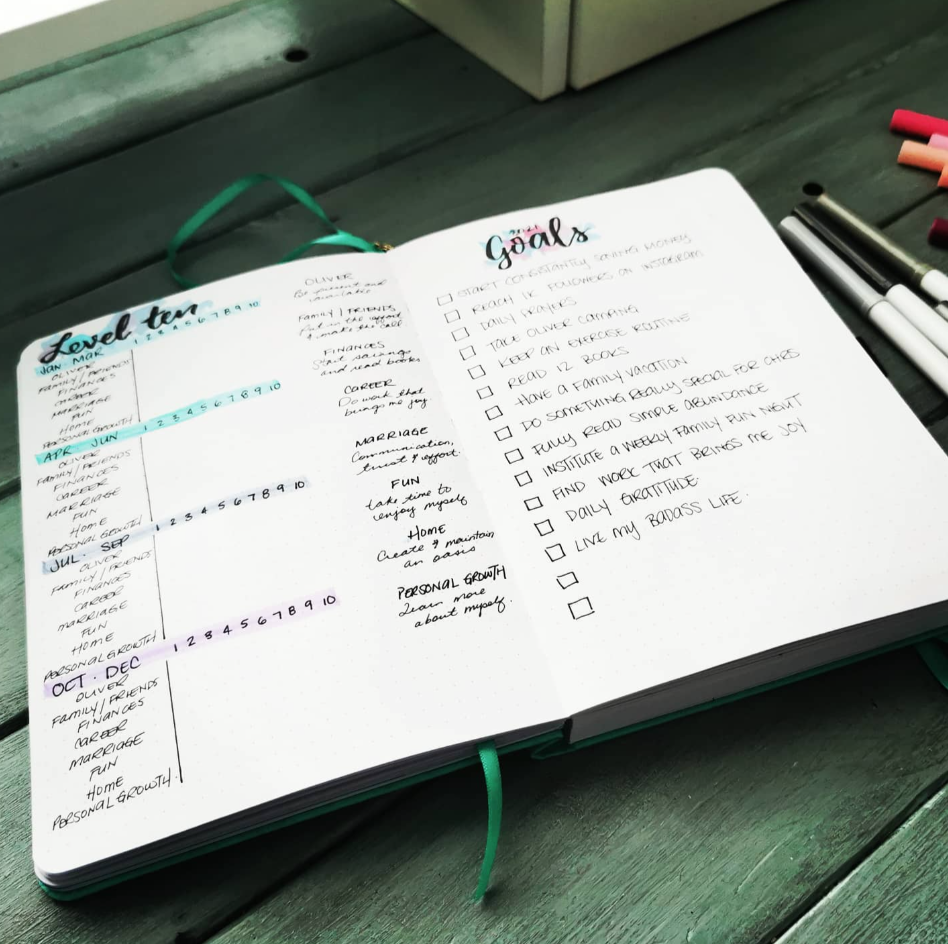 Level ten
JAN. MAR 1 2 3 4 5 6 7 8 9 10
OLIVER
FAMILY/FRIENDS
FINANCES
CAREER
MARRIAGE
FUN
HOME
PERSONAL GROWTH
APR. JUN 1 2 3 4 5 6 7 8 9 10
OLIVER
FAMILY/FRIENDS
FINANCES
CAREER
MARRIAGE
FUN
HOME
PERSONAL GROWTH
JUL. SEP 1 2 3 4 5 6 7 8 9 10
OLIVER
FAMILY/FRIENDS
FINANCES
CAREER
MARRIAGE
FUN
HOME
PERSONAL GROWTH
OCT. DEC 1 2 3 4 5 6 7 8 9 10
OLIVER
FAMILY/FRIENDS
FINANCES
CAREER
MARRIAGE
FUN
HOME
PERSONAL GROWTH.
OLIVER
Be present and
available
FAMILY/FRIENDS
Put in the effort
& make the call
FINANCES
Start savings
and read books
CAREER
Do work that
brings me joy
MARRIAGE
Communication,
trust & effort.
FUN
take time to
enjoy myself
HOME
Create & maintain
an oasis
PERSONAL GROWTH
Learn more
about myself.
2021
Goals
START CONSISTANTLY SAVING MONEY
REACH 1K FOLLOWERS ON INSTAGRAM
DAILY PRAYERS
TAKE OLIVER CAMPING
KEEP AN EXERCISE ROUTINE
READ 12 BOOKS
HAVE A FAMILY VACATION
DO SOMETHING REALLY SPECIAL FOR CHRIS
FULLY READ SIMPLE ABUNDANCE
INSTITUTE A WEEKLY FAMILY FUN NIGHT
FIND WORK THAT BRINGS ME JOY
DAILY GRATITUDE.
LIVE MY BADASS LIFE.